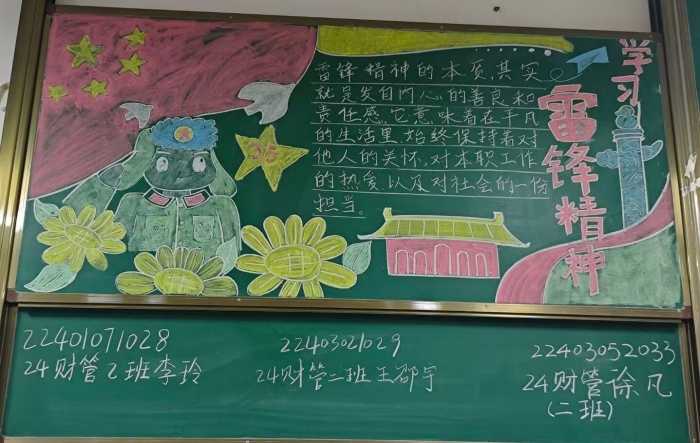 学习
雷锋精神
雷锋精神的本质,其实
就是发自内心的善良和
责任感,它意味着在平凡
的生活里,始终保持着对
他人的关怀,对本职工作
的热爱以及对社会的一份
担当。
35
22401071028
24财管乙班李玲
22403021029
24财管二班王邵宇
22403052033
24财管徐凡
(二班)